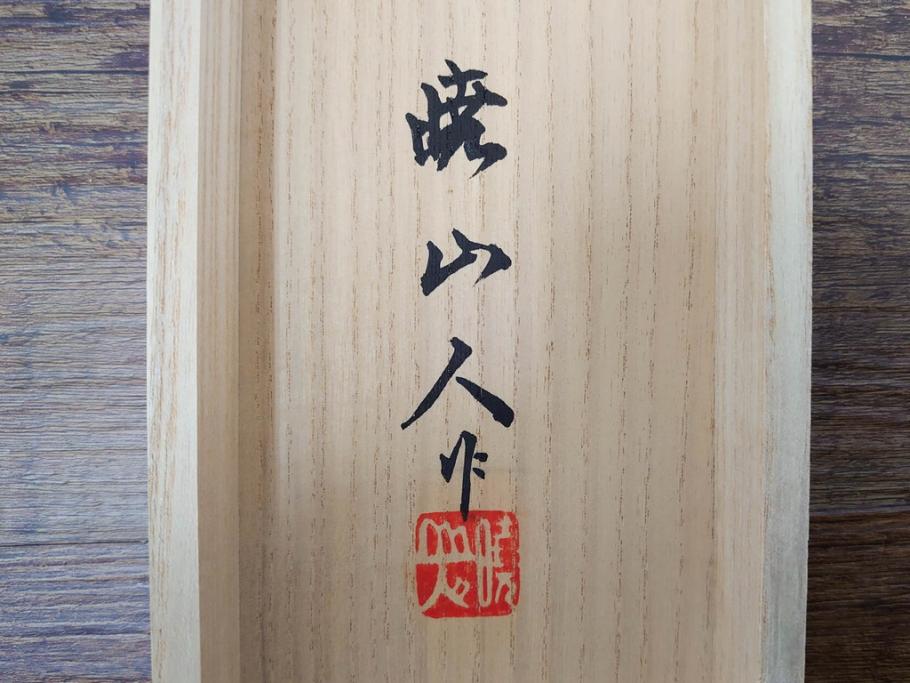 暁山人作
暁
山人